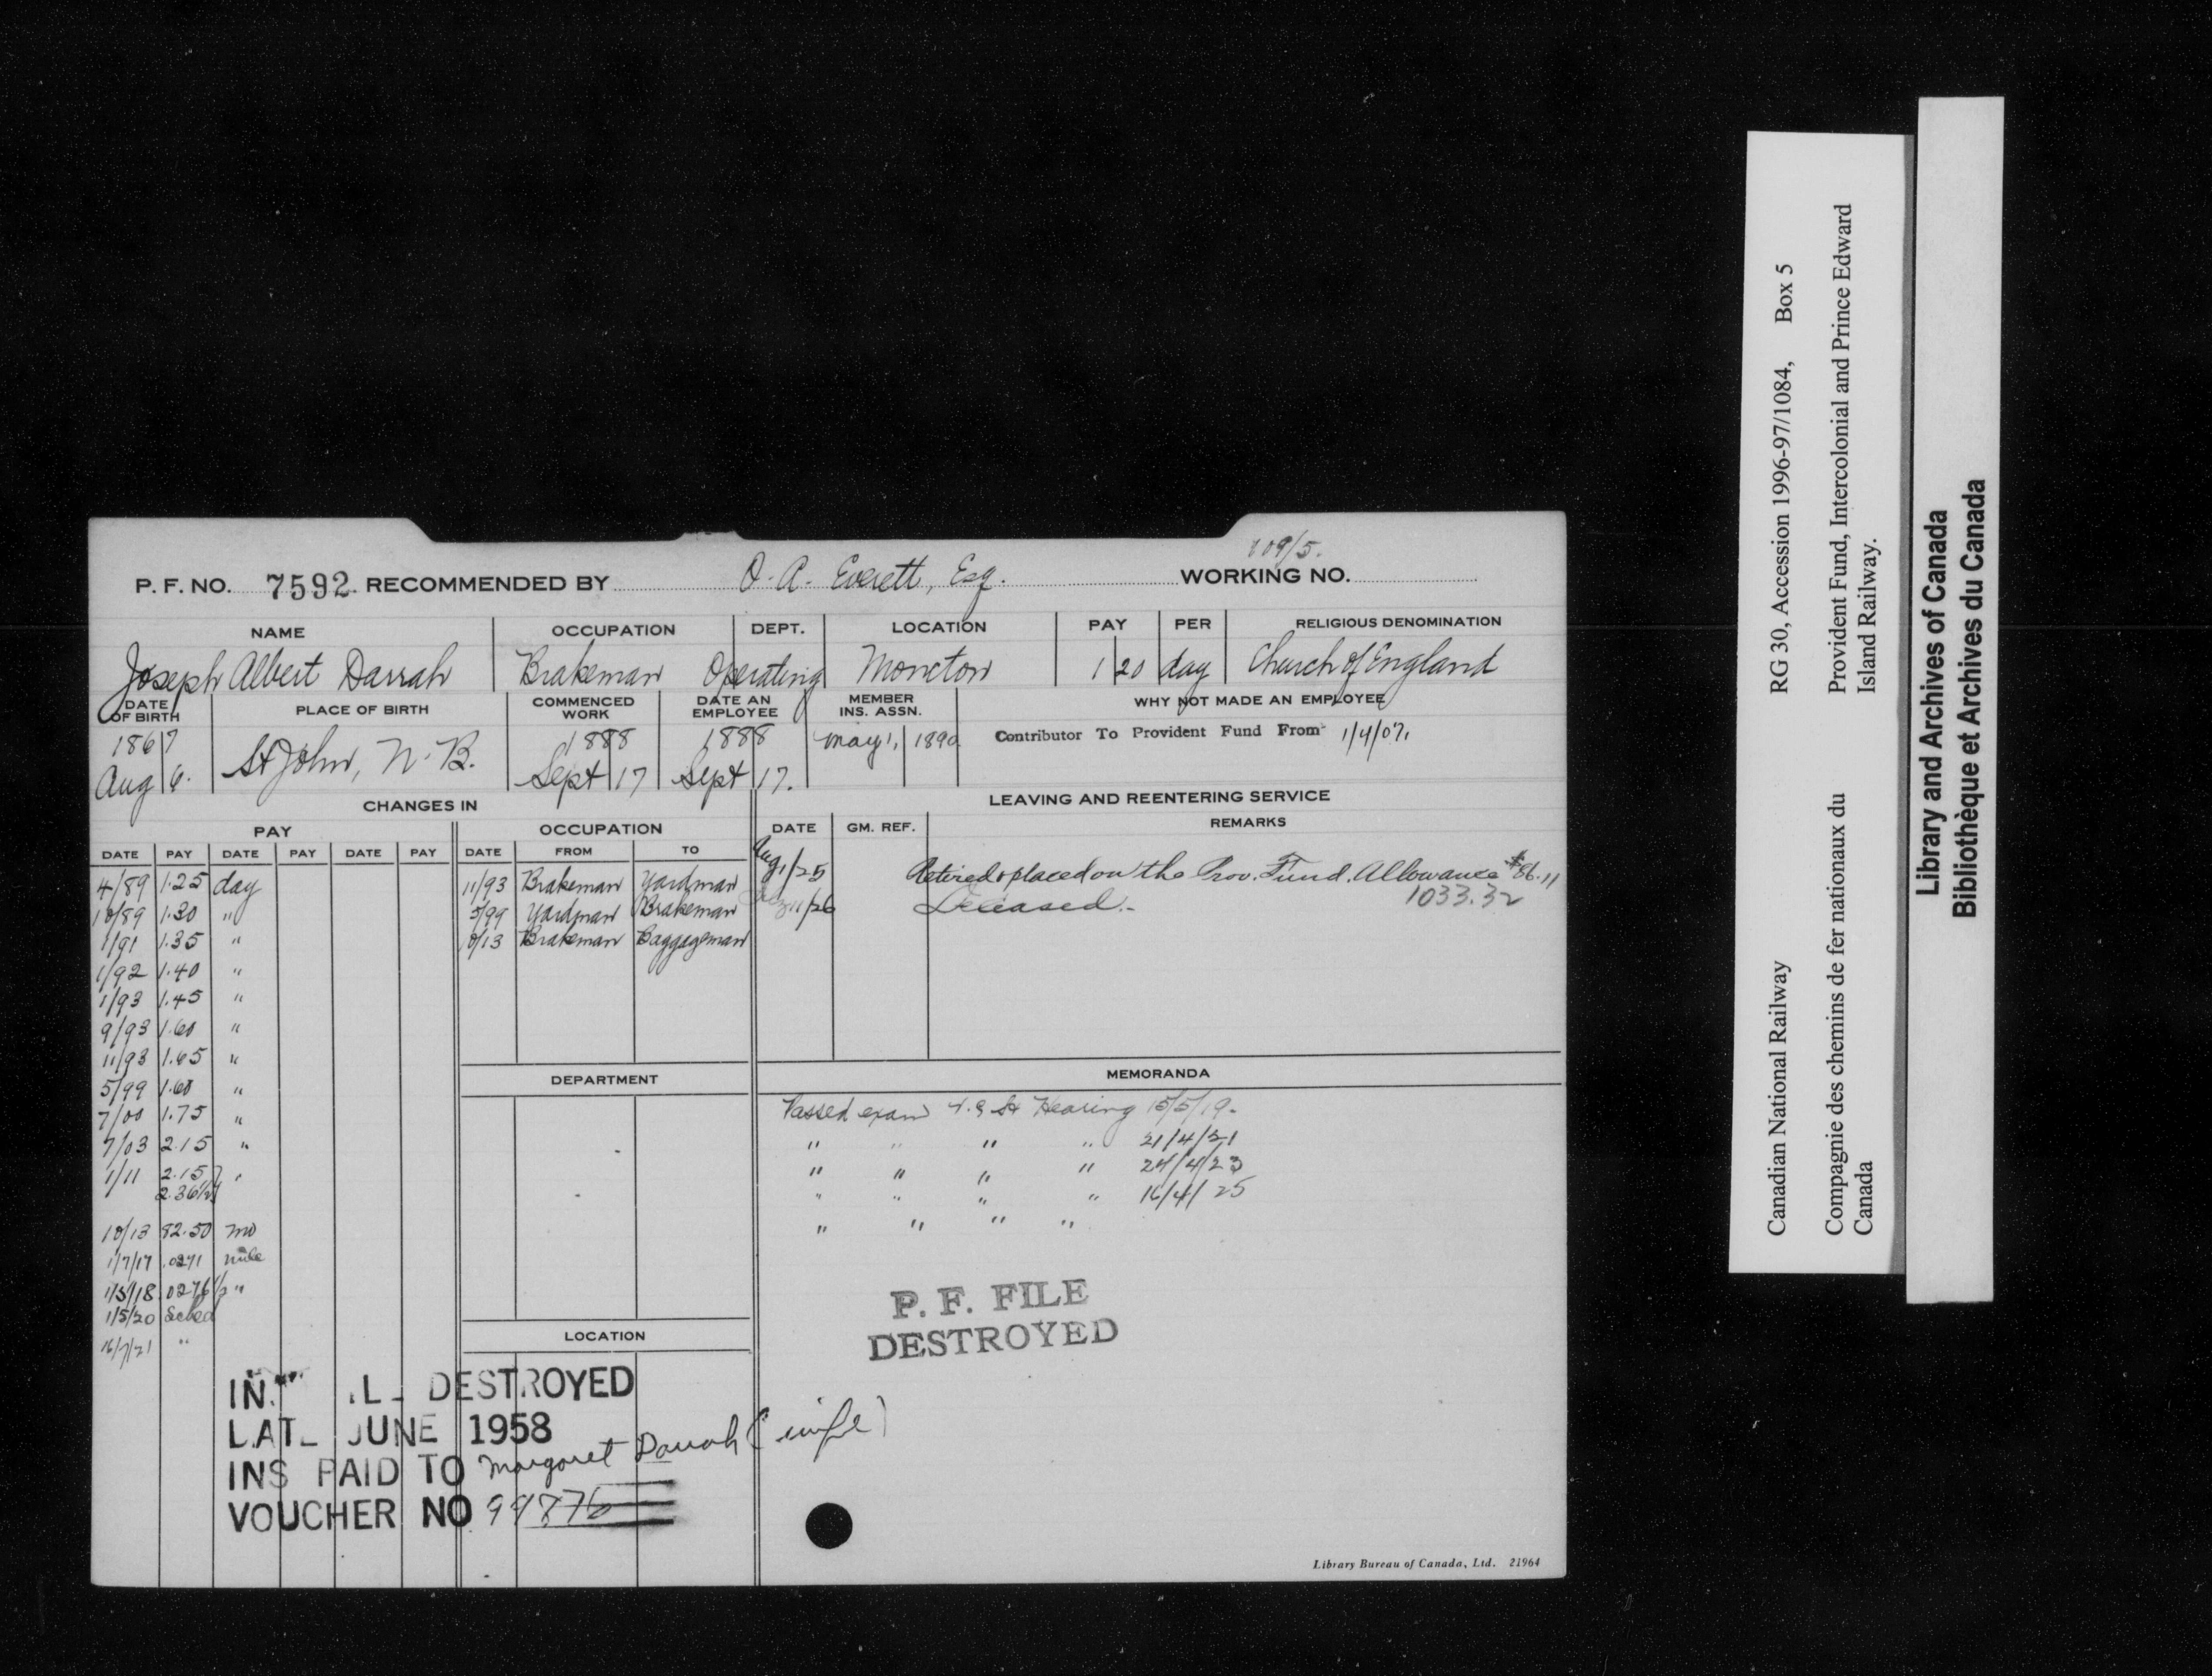 109/5.
P. F. NO. 7592 RECOMMENDED BY O. A. Everett, Esq. WORKING NO.
NAME OCCUPATION DEPT. LOCATION PAY PER RELIGIOUS DENOMINATION
Joseph Albert Darrah Brakeman Operating Moncton 1 20 day Church of England
DATE OF BIRTH PLACE OF BIRTH COMMENCED WORK DATE AN EMPLOYEE MEMBER INS. ASSN. WHY NOT MADE AN EMPLOYEE
1867 1888 1888 May 1, 1890 Contributor To Provident Fund From 1/4/07.
Aug 6. St John, N. B. Sept 17 Sept 17.
CHANGES IN
PAY OCCUPATION
DATE PAY DATE PAY DATE PAY DATE FROM TO
4/89 1.25 day 11/93 Brakeman Yardman
10/89 1.30 " 5/99 Yardman Brakeman
1/91 1.35 " 10/13 Brakeman Baggageman
1/92 1.40 "
1/93 1.45 "
9/93 1.60 "
11/93 1.65 "
5/99 1.60 "
7/00 1.75 "
7/03 2.15 "
1/11 2.15 "
2.36½
10/13 82.50 mo
1/7/17 .0271 mile
1/5/18 .0276½ "
1/5/20 Sched
16/7/21 "
DEPARTMENT
LOCATION
LEAVING AND REENTERING SERVICE
DATE GM. REF. REMARKS
Aug 1/25 Retired & placed on the Prov. Fund. Allowance $86.11
11/26 Deceased.- 1033.32
MEMORANDA
Passed exam Hearing 15/5/19-
" " " " 21/4/21
" " " " 24/4/23
" " " " 16/4/25
" " " "
P. F. FILE
DESTROYED
DESTROYED
JUNE 1958
INS PAID TO Margaret Darrah (wife)
VOUCHER NO 99876
Library Bureau of Canada, Ltd. 21964
Canadian National Railway RG 30, Accession 1996-97/1084, Box 5
Compagnie des chemins de fer nationaux du Canada
Provident Fund, Intercolonial and Prince Edward Island Railway.
Library and Archives of Canada
Bibliothèque et Archives du Canada